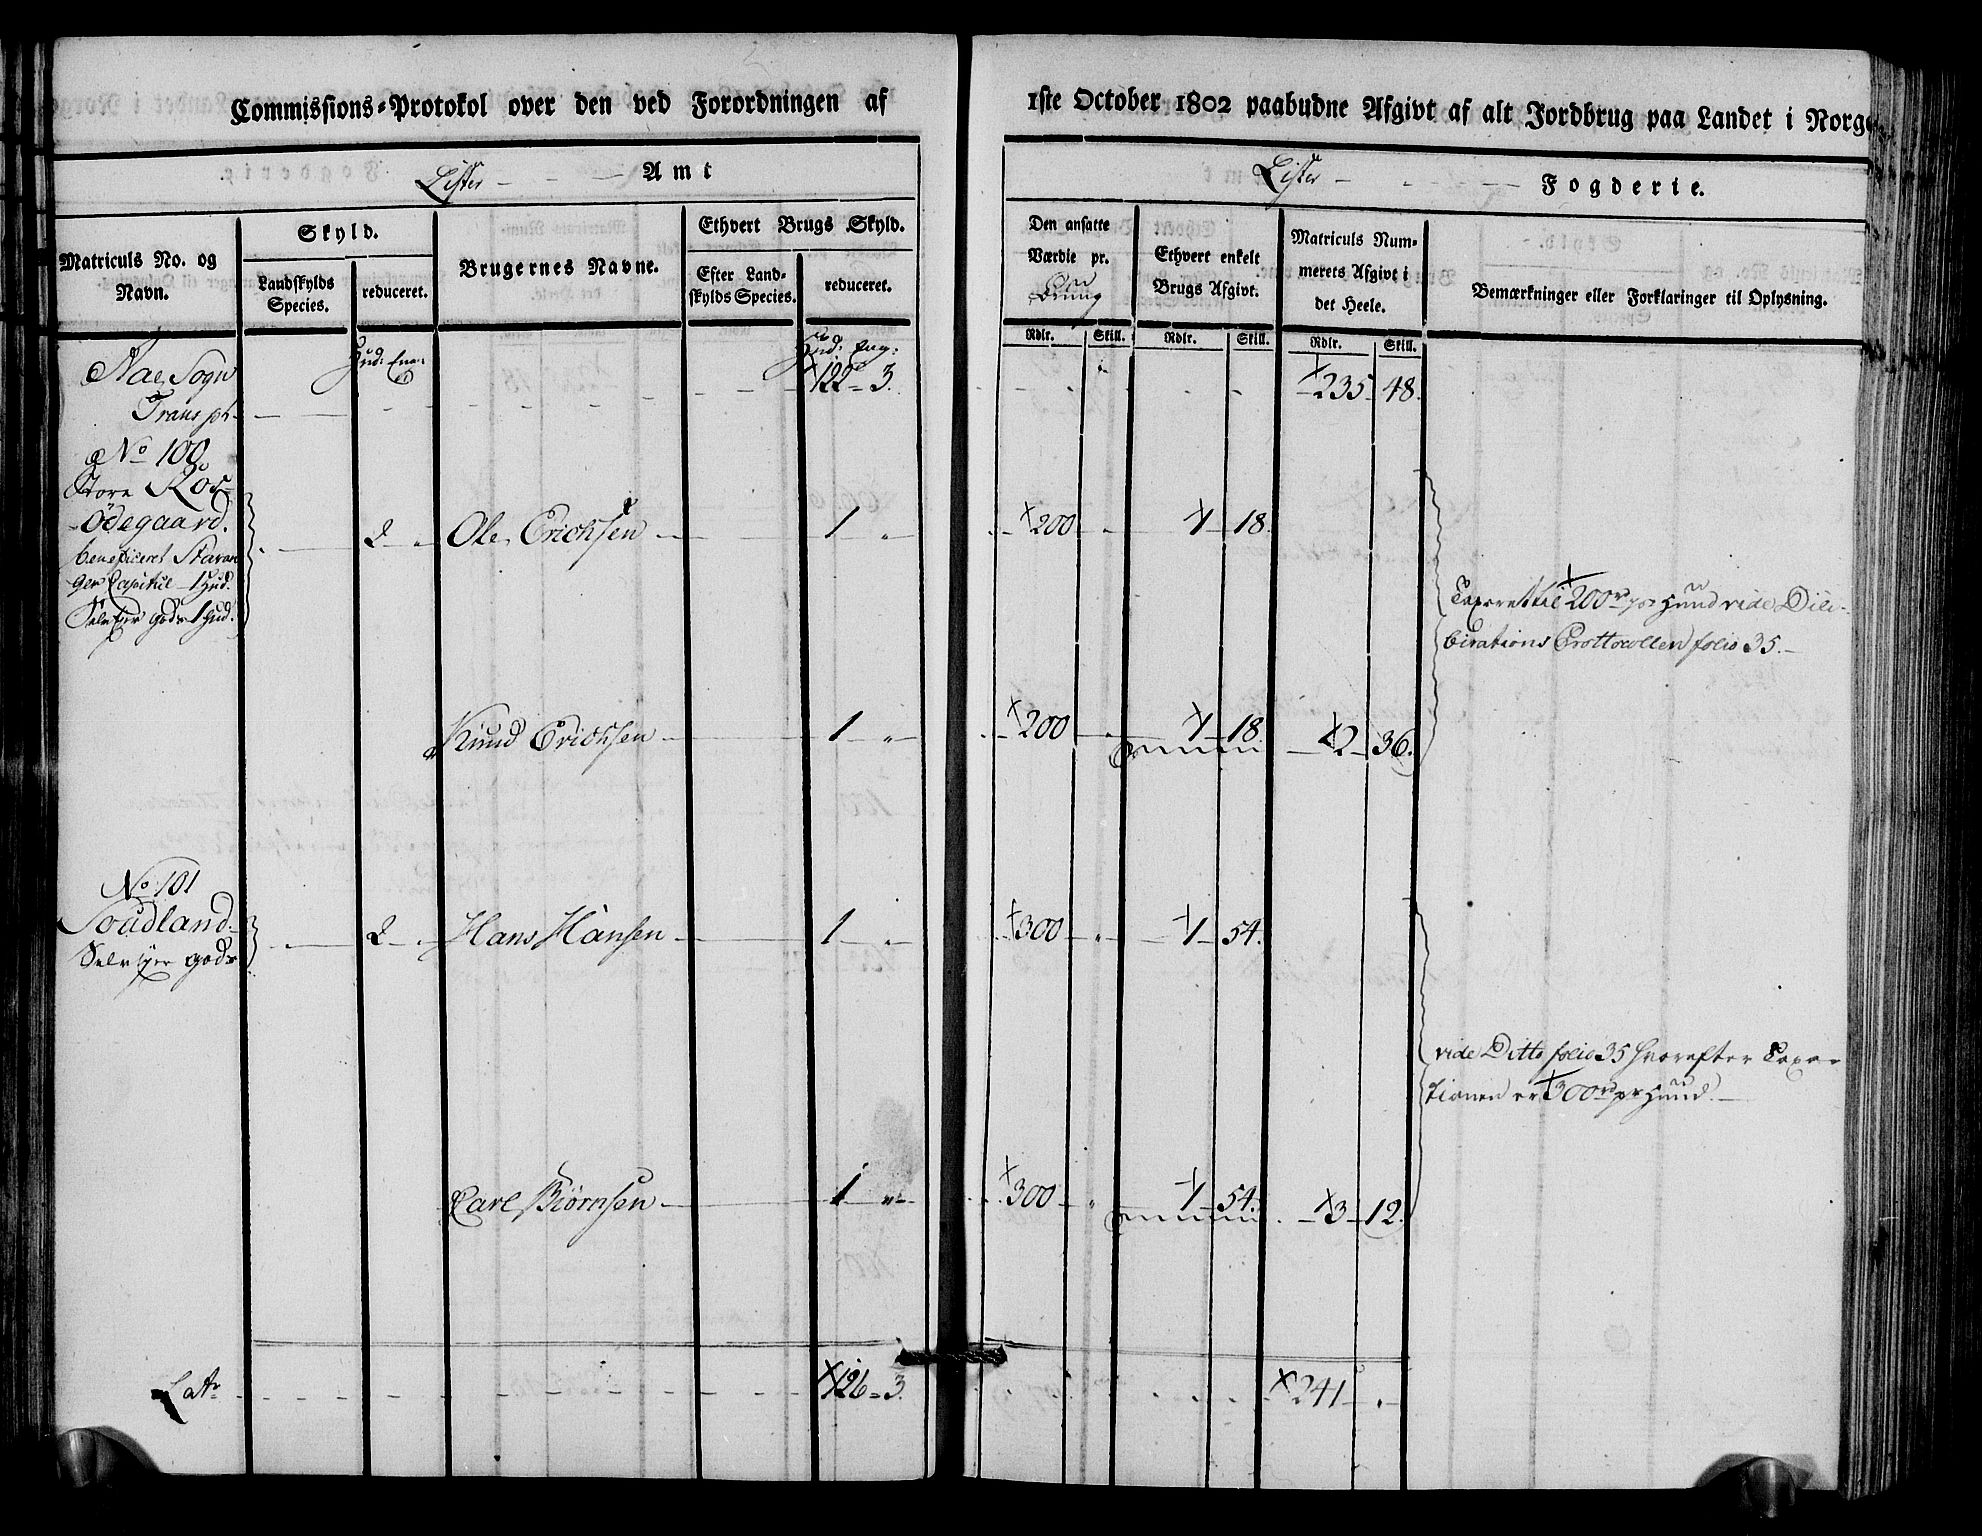 Commissions-Protokol over den ved Forordningen af 1ste October 1802 paabudne Afgivt af alt Jordbrug paa Landet i Norge
Lister Amt
Lister Fogderie.
Matriculs No. og Navn.
Skyld.
Landskylds Species.
reduceret.
Brugernes Navne.
Ethvert Brugs Skyld.
Efter Landskylds Species.
reduceret.
Den ansatte Værdie pr. Hud
Ethvert enkelt Brugs Afgivt.
Matriculs Nummerets Afgivt i det Heele.
Bemærkninger eller Forklaringer til Oplysning.
Rdlr. Skill. Rdlr. Skill. Rdlr. Skill.
Hud: Eng:
Hud: Eng:
Naes Sogn 122 - 3. 235 48.
Transpt
No 100
Store Røs-
Ødegaard. 2 Ole Erichsen 1 " 200 1 18.
beneficeret Stavan
ger Capitul 1 Hud.
Selvejer gods 1 Hud.
Taxeret til 200 rd pr Hund vide Deli-
birations Prottocollen folio 35.
Knud Erichsen 1 " 200 1 18. 2 36.
No 101
Soudland 2 Hans Hansen 1 " 300 " 1 54.
Selvejer gods
vide Ditto folio 35 hvorefter Taxa-
tionen er 300 rd pr Hund.
Carl Biørnsen 1 " 300 " 1 54. 3 12.
Latr 126 - 3. 241 "